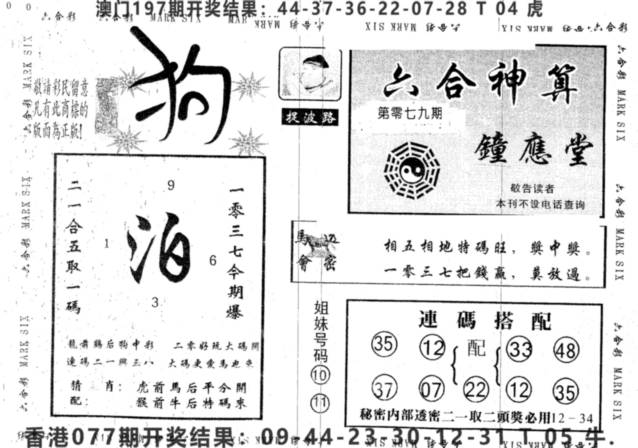 澳门197期开奖结果：44-37-36-22-07-28 T 04 虎
六合彩 MARK SIX
敬请彩民留意
凡有此商标的
版面為正版!
狗
捉波路
六合神算
第零七九期
鐘應堂
敬告读者
本刊不设电话查询
二一合五取一碼
9
1
泊
6
3
一零三七今期爆
龍前鷄后狗中彩 二零好玩大碼開
連碼二一與三八 大碼更愛馬迎兔
猜肖：虎前馬后平分開
配：猴前牛后特碼來
馬會
相五相地特碼旺，獎中獎。
一零三七把錢贏，莫放過。
姐妹号码
10
11
連碼搭配
35 12 配 33 48
37 07 22 12 35
秘密内部透密二一取二頭獎必用12-34
香港077期开奖结果：09-44-23-30-12-31 T 05 牛.